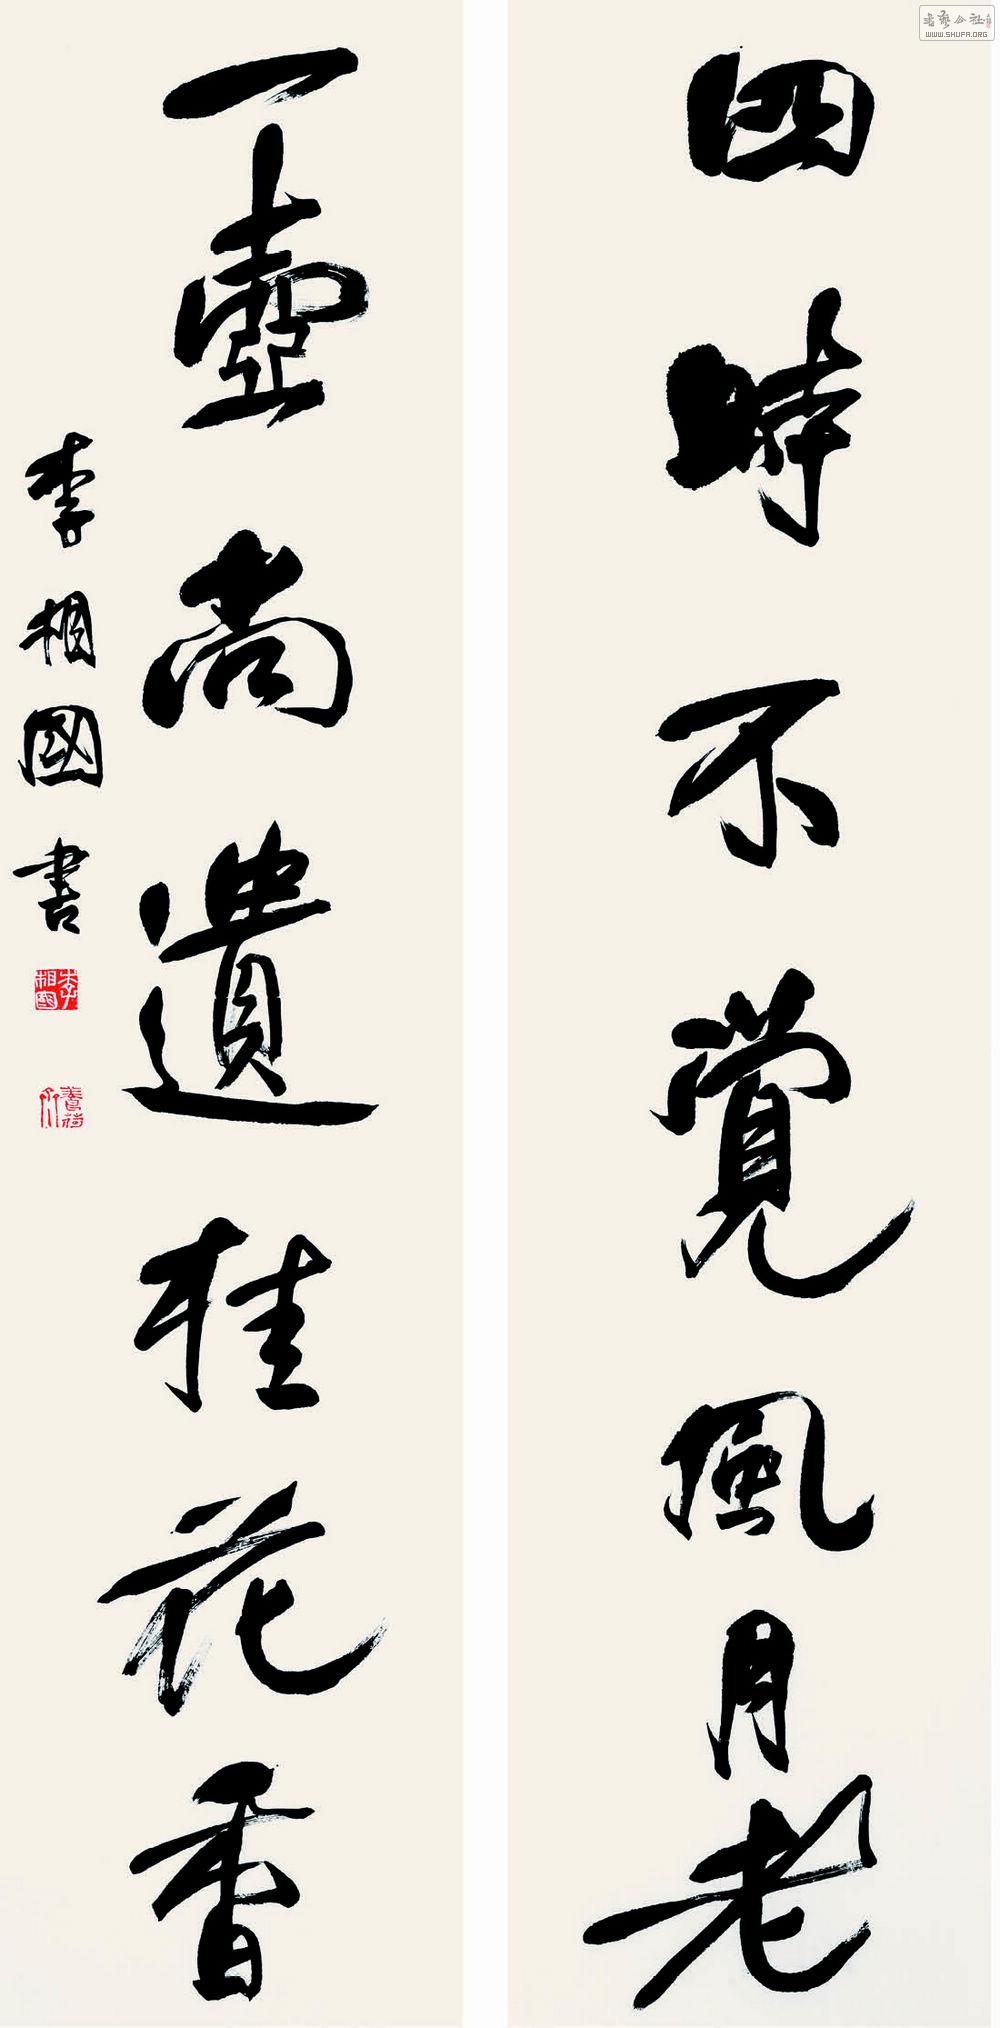 四時不覺風月老
一壺尚遺桂花香
李相國書
李相國
書藝公社
WWW.SHUFA.ORG